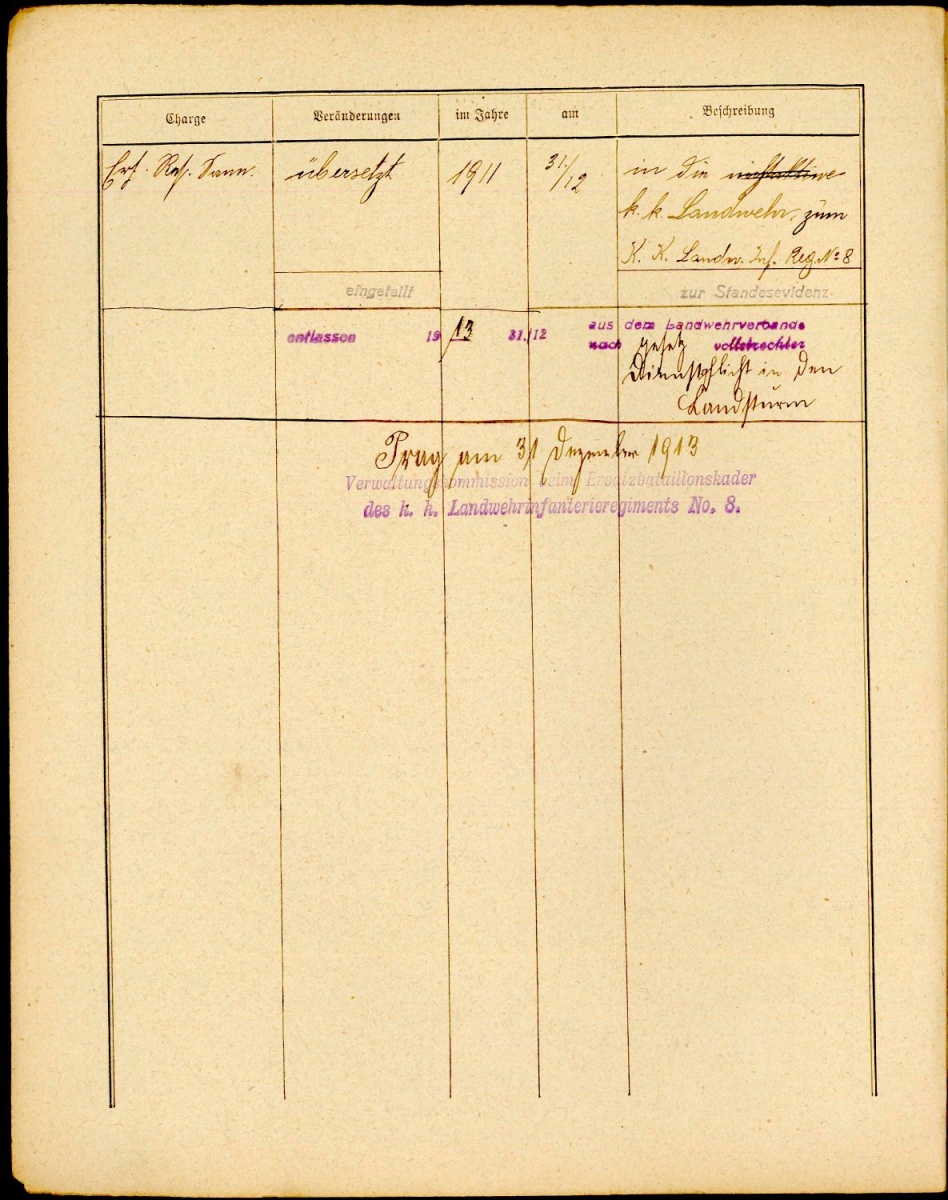 Charge Veränderungen im Jahre am Beschreibung
Ers. Res. übersetzt 1911 31./12 in die
k. k. Landwehr, zum
K. K. Landw. Inf. Reg. No 8
eingeteilt zur Standesevidenz
entlassen 1913 31./12 aus dem Landwehrverbande
nach gesetz vollstreckter
Dienstpflicht in den
Landsturm
Prag am 31 Dezember 1913
Verwaltungskommission beim Ersatzbataillonskader
des k. k. Landwehrinfanterieregiments No. 8.